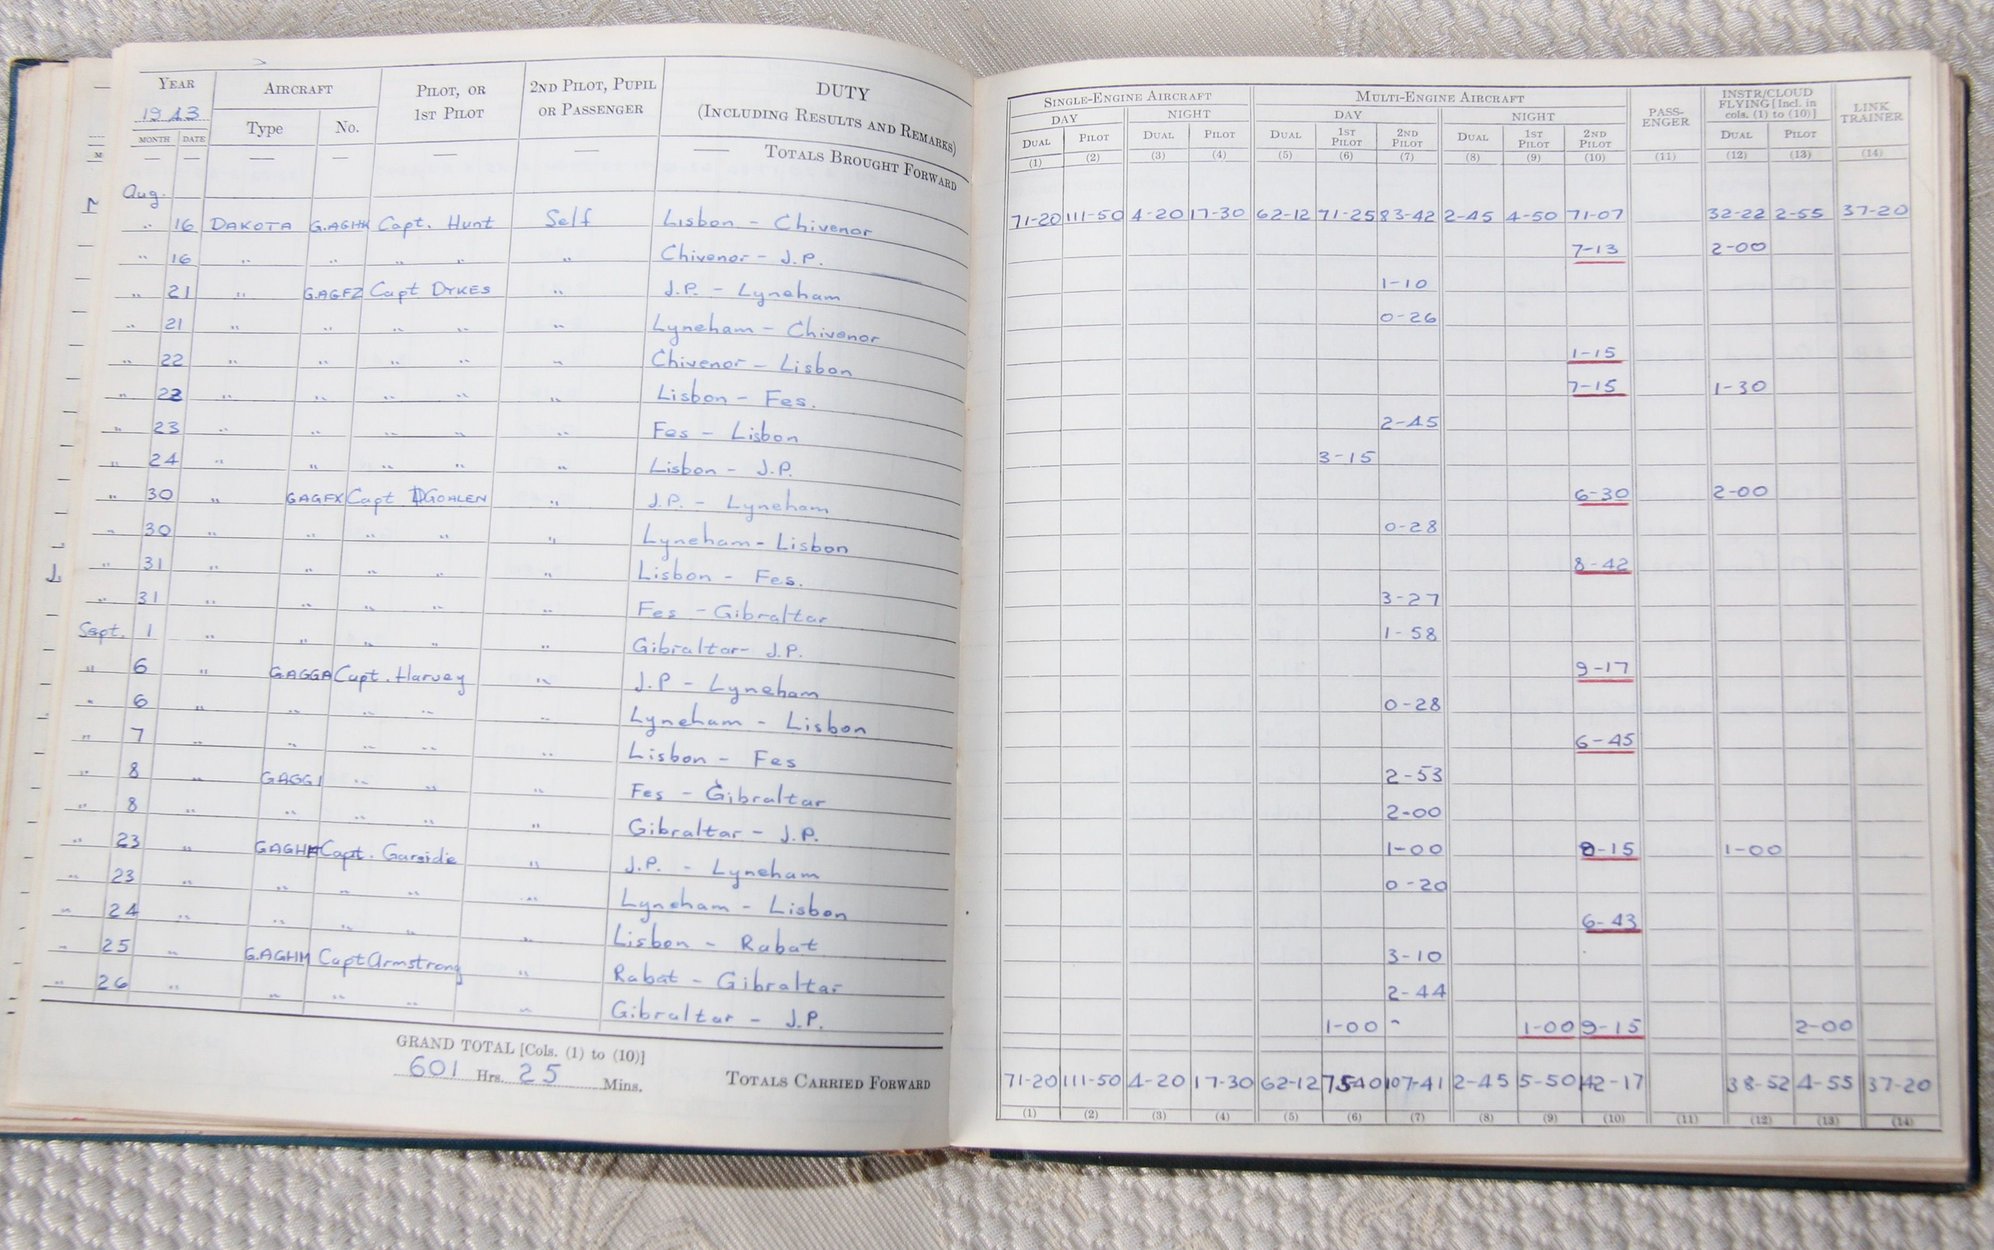 YEAR AIRCRAFT PILOT, OR 1ST PILOT 2ND PILOT, PUPIL OR PASSENGER DUTY (INCLUDING RESULTS AND REMARKS)
1943 Type No.
MONTH DATE
TOTALS BROUGHT FORWARD
Aug.
" 16 DAKOTA G.AGHH Capt. Hunt Self Lisbon - Chivenor
" 16 " " " " " Chivenor - J.P.
" 21 " G.AGFZ Capt DYKES " J.P. - Lyneham
" 21 " " " " " Lyneham - Chivenor
" 22 " " " " " Chivenor - Lisbon
" 22 " " " " " Lisbon - Fes.
" 23 " " " " " Fes - Lisbon
" 24 " " " " " Lisbon - J.P.
" 30 " GAGFX Capt GOALEN " J.P. - Lyneham
" 30 " " " " " Lyneham - Lisbon
" 31 " " " " " Lisbon - Fes.
" 31 " " " " " Fes - Gibraltar
Sept. 1 " " " " " Gibraltar - J.P.
" 6 " G.AGGA Capt. Harvey " J.P - Lyneham
" 6 " " " " " Lyneham - Lisbon
" 7 " " " " " Lisbon - Fes
" 8 " GAGGI " " " Fes - Gibraltar
" 8 " " " " " Gibraltar - J.P.
" 23 " GAGHH Capt. Garside " J.P. - Lyneham
" 23 " " " " " Lyneham - Lisbon
" 24 " " " " " Lisbon - Rabat
" 25 " G.AGHM Capt Armstrong " Rabat - Gibraltar
" 26 " " " " " Gibraltar - J.P.
GRAND TOTAL [Cols. (1) to (10)]
601 Hrs. 25 Mins.
TOTALS CARRIED FORWARD
SINGLE-ENGINE AIRCRAFT MULTI-ENGINE AIRCRAFT PASSENGER INSTR/CLOUD FLYING [Incl. in cols. (1) to (10)] LINK TRAINER
DAY NIGHT DAY NIGHT
DUAL PILOT DUAL PILOT DUAL 1ST PILOT 2ND PILOT DUAL 1ST PILOT 2ND PILOT DUAL PILOT
(1) (2) (3) (4) (5) (6) (7) (8) (9) (10) (11) (12) (13) (14)
71-20 111-50 4-20 17-30 62-12 71-25 83-42 2-45 4-50 71-07 32-22 2-55 37-20
7-13 2-00
1-10
0-26
1-15
7-15 1-30
2-45
3-15
6-30 2-00
0-28
8-42
3-27
1-58
9-17
0-28
6-45
2-53
2-00
1-00 8-15 1-00
0-20
6-43
3-10
2-44
1-00 1-00 9-15 2-00
71-20 111-50 4-20 17-30 62-12 75-40 107-41 2-45 5-50 142-17 38-52 4-55 37-20
(1) (2) (3) (4) (5) (6) (7) (8) (9) (10) (11) (12) (13) (14)